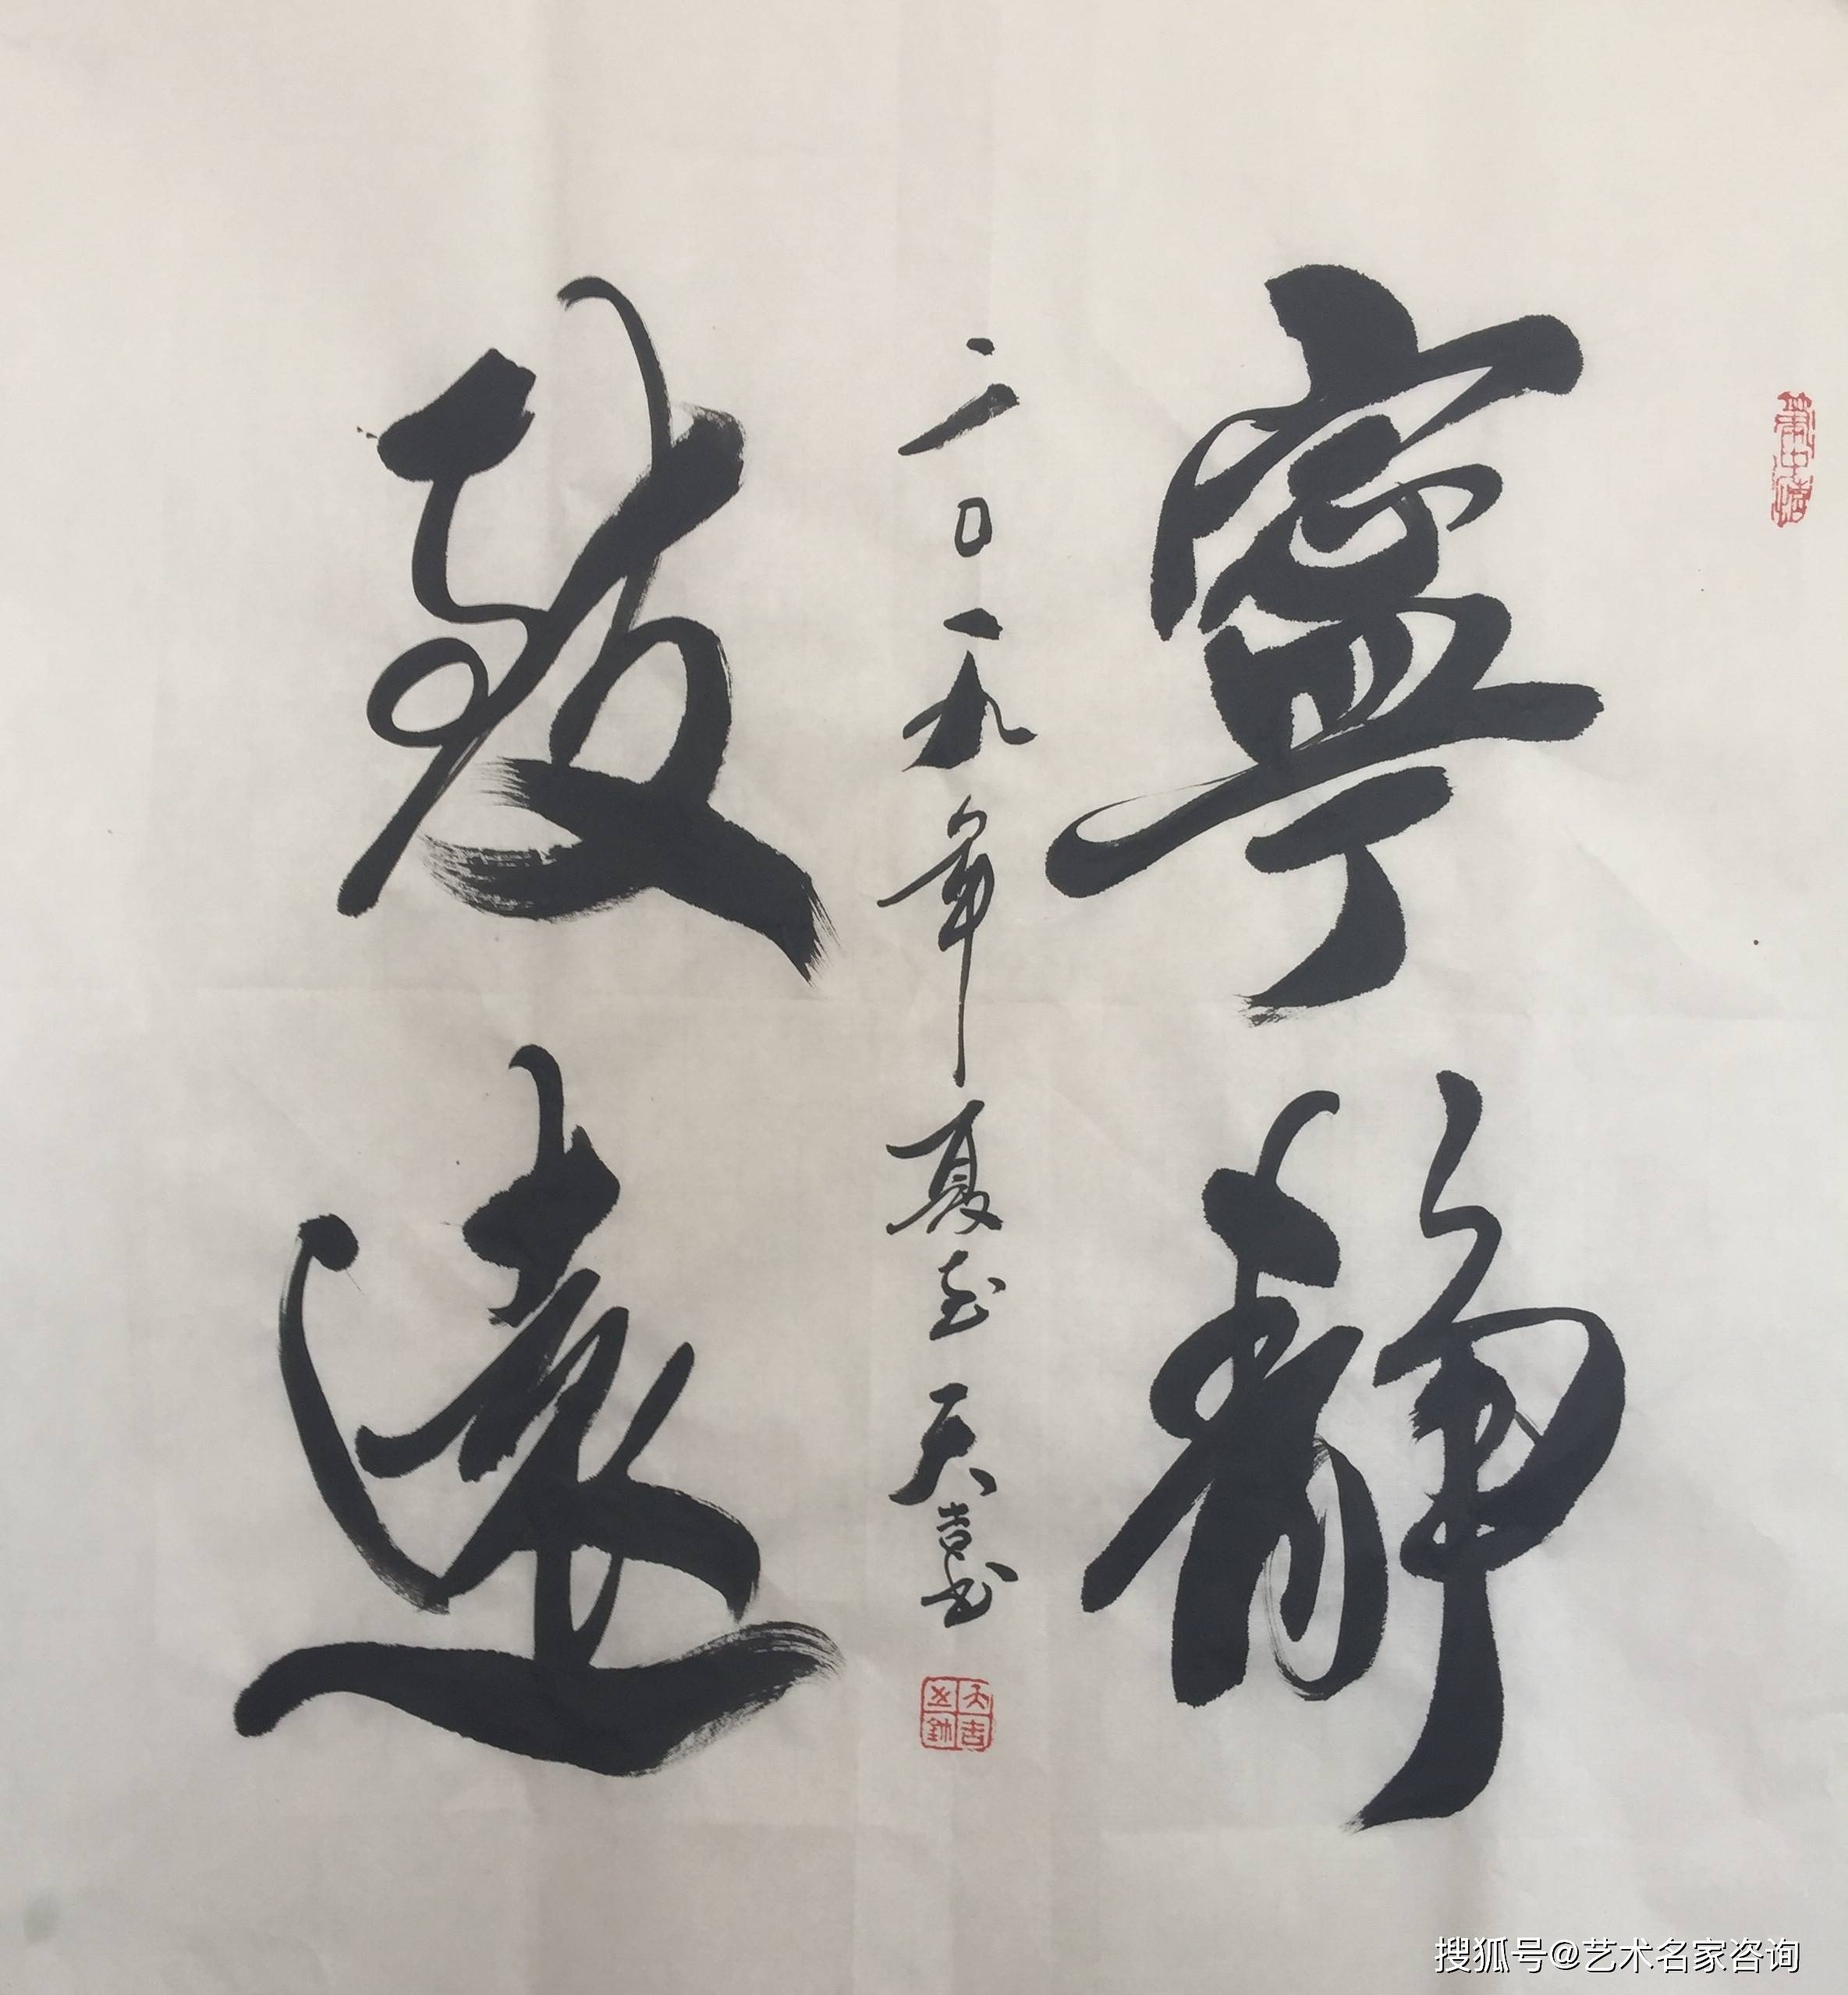 寧靜
致遠
二〇一九年夏至天吉书
天吉
搜狐号@艺术名家咨询